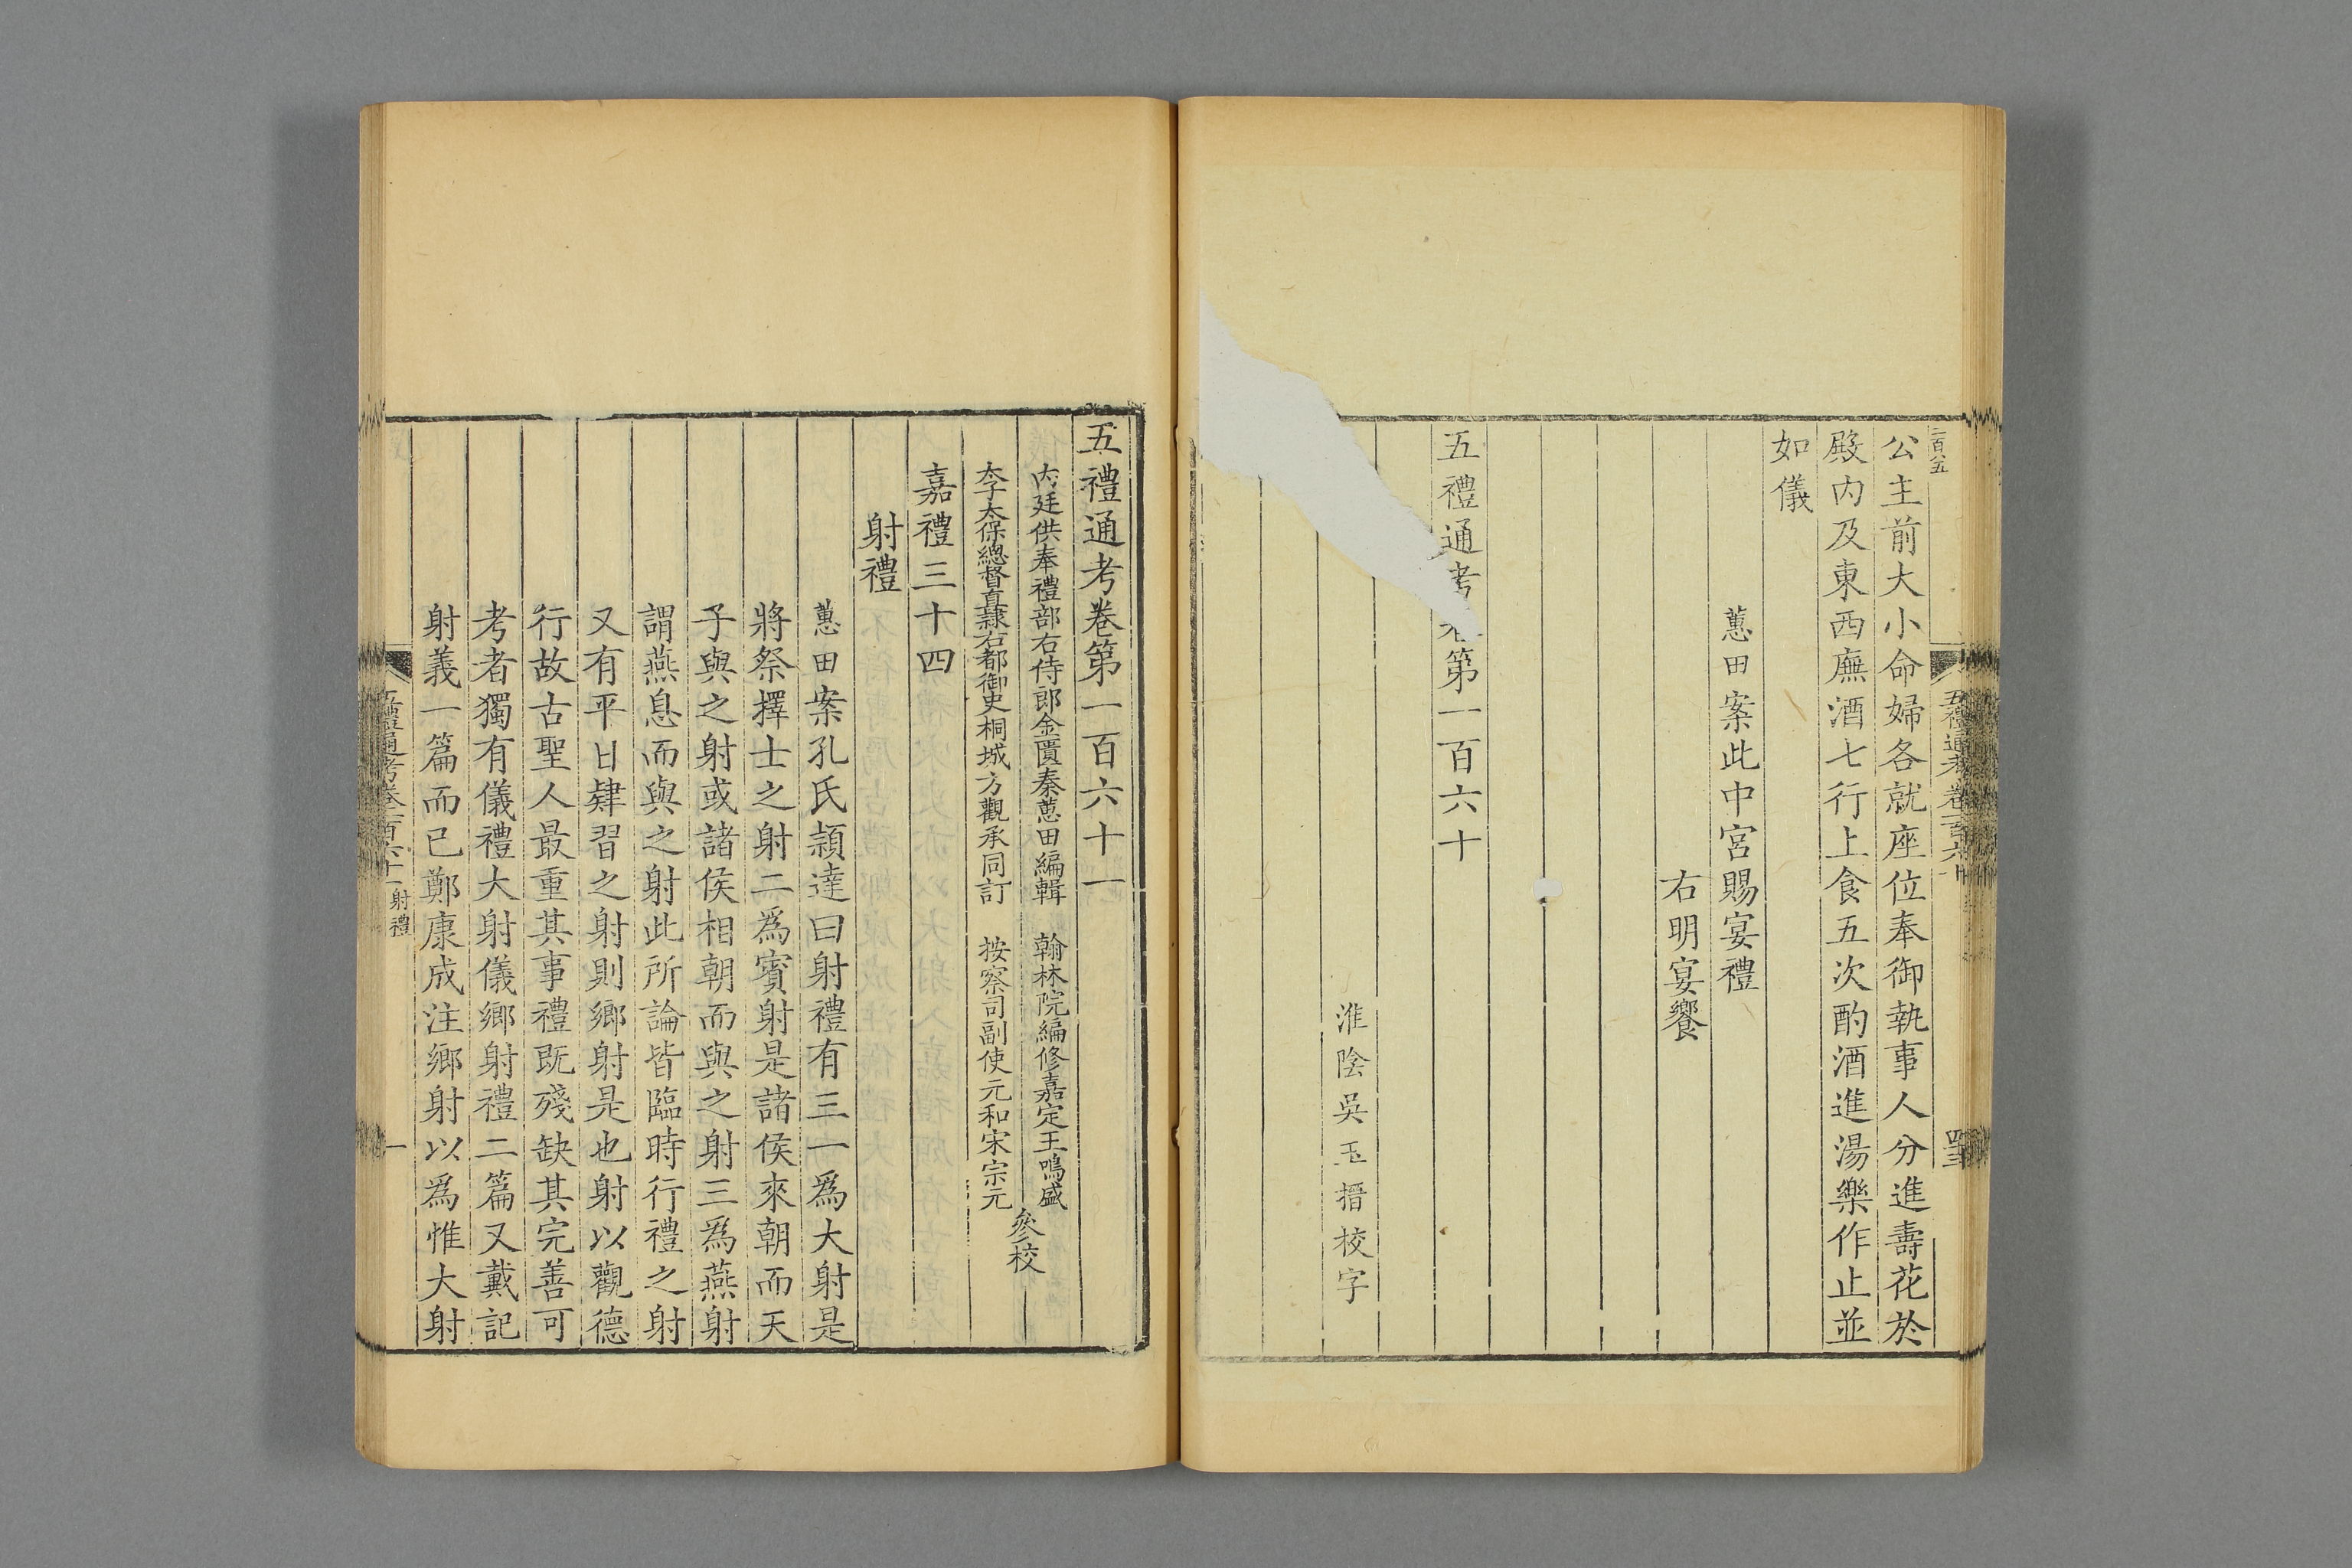 二百八五
公主前大小命婦各就座位奉御執事人分進壽花於
殿內及東西廡酒七行上食五次酌酒進湯樂作止並
如儀
蕙田案此中宮賜宴禮
右明宴饗
五禮通考卷第一百六十
淮陰吳玉搢校字
五禮通考卷一百六十
五禮通考卷第一百六十一
內廷供奉禮部右侍郎金匱秦蕙田編輯 翰林院編修嘉定王鳴盛
太子太保總督直隸右都御史桐城方觀承同訂 按察司副使元和宋宗元
參校
嘉禮三十四
射禮
蕙田案孔氏穎達曰射禮有三一爲大射是
將祭擇士之射二爲賓射是諸侯來朝而天
子與之射或諸侯相朝而與之射三爲燕射
謂燕息而與之射此所論皆臨時行禮之射
又有平日肄習之射則鄉射是也射以觀德
行故古聖人最重其事禮旣殘缺其完善可
考者獨有儀禮大射儀鄉射禮二篇又戴記
射義一篇而已鄭康成注鄉射以爲惟大射
五禮通考卷一百六十一 射禮
一